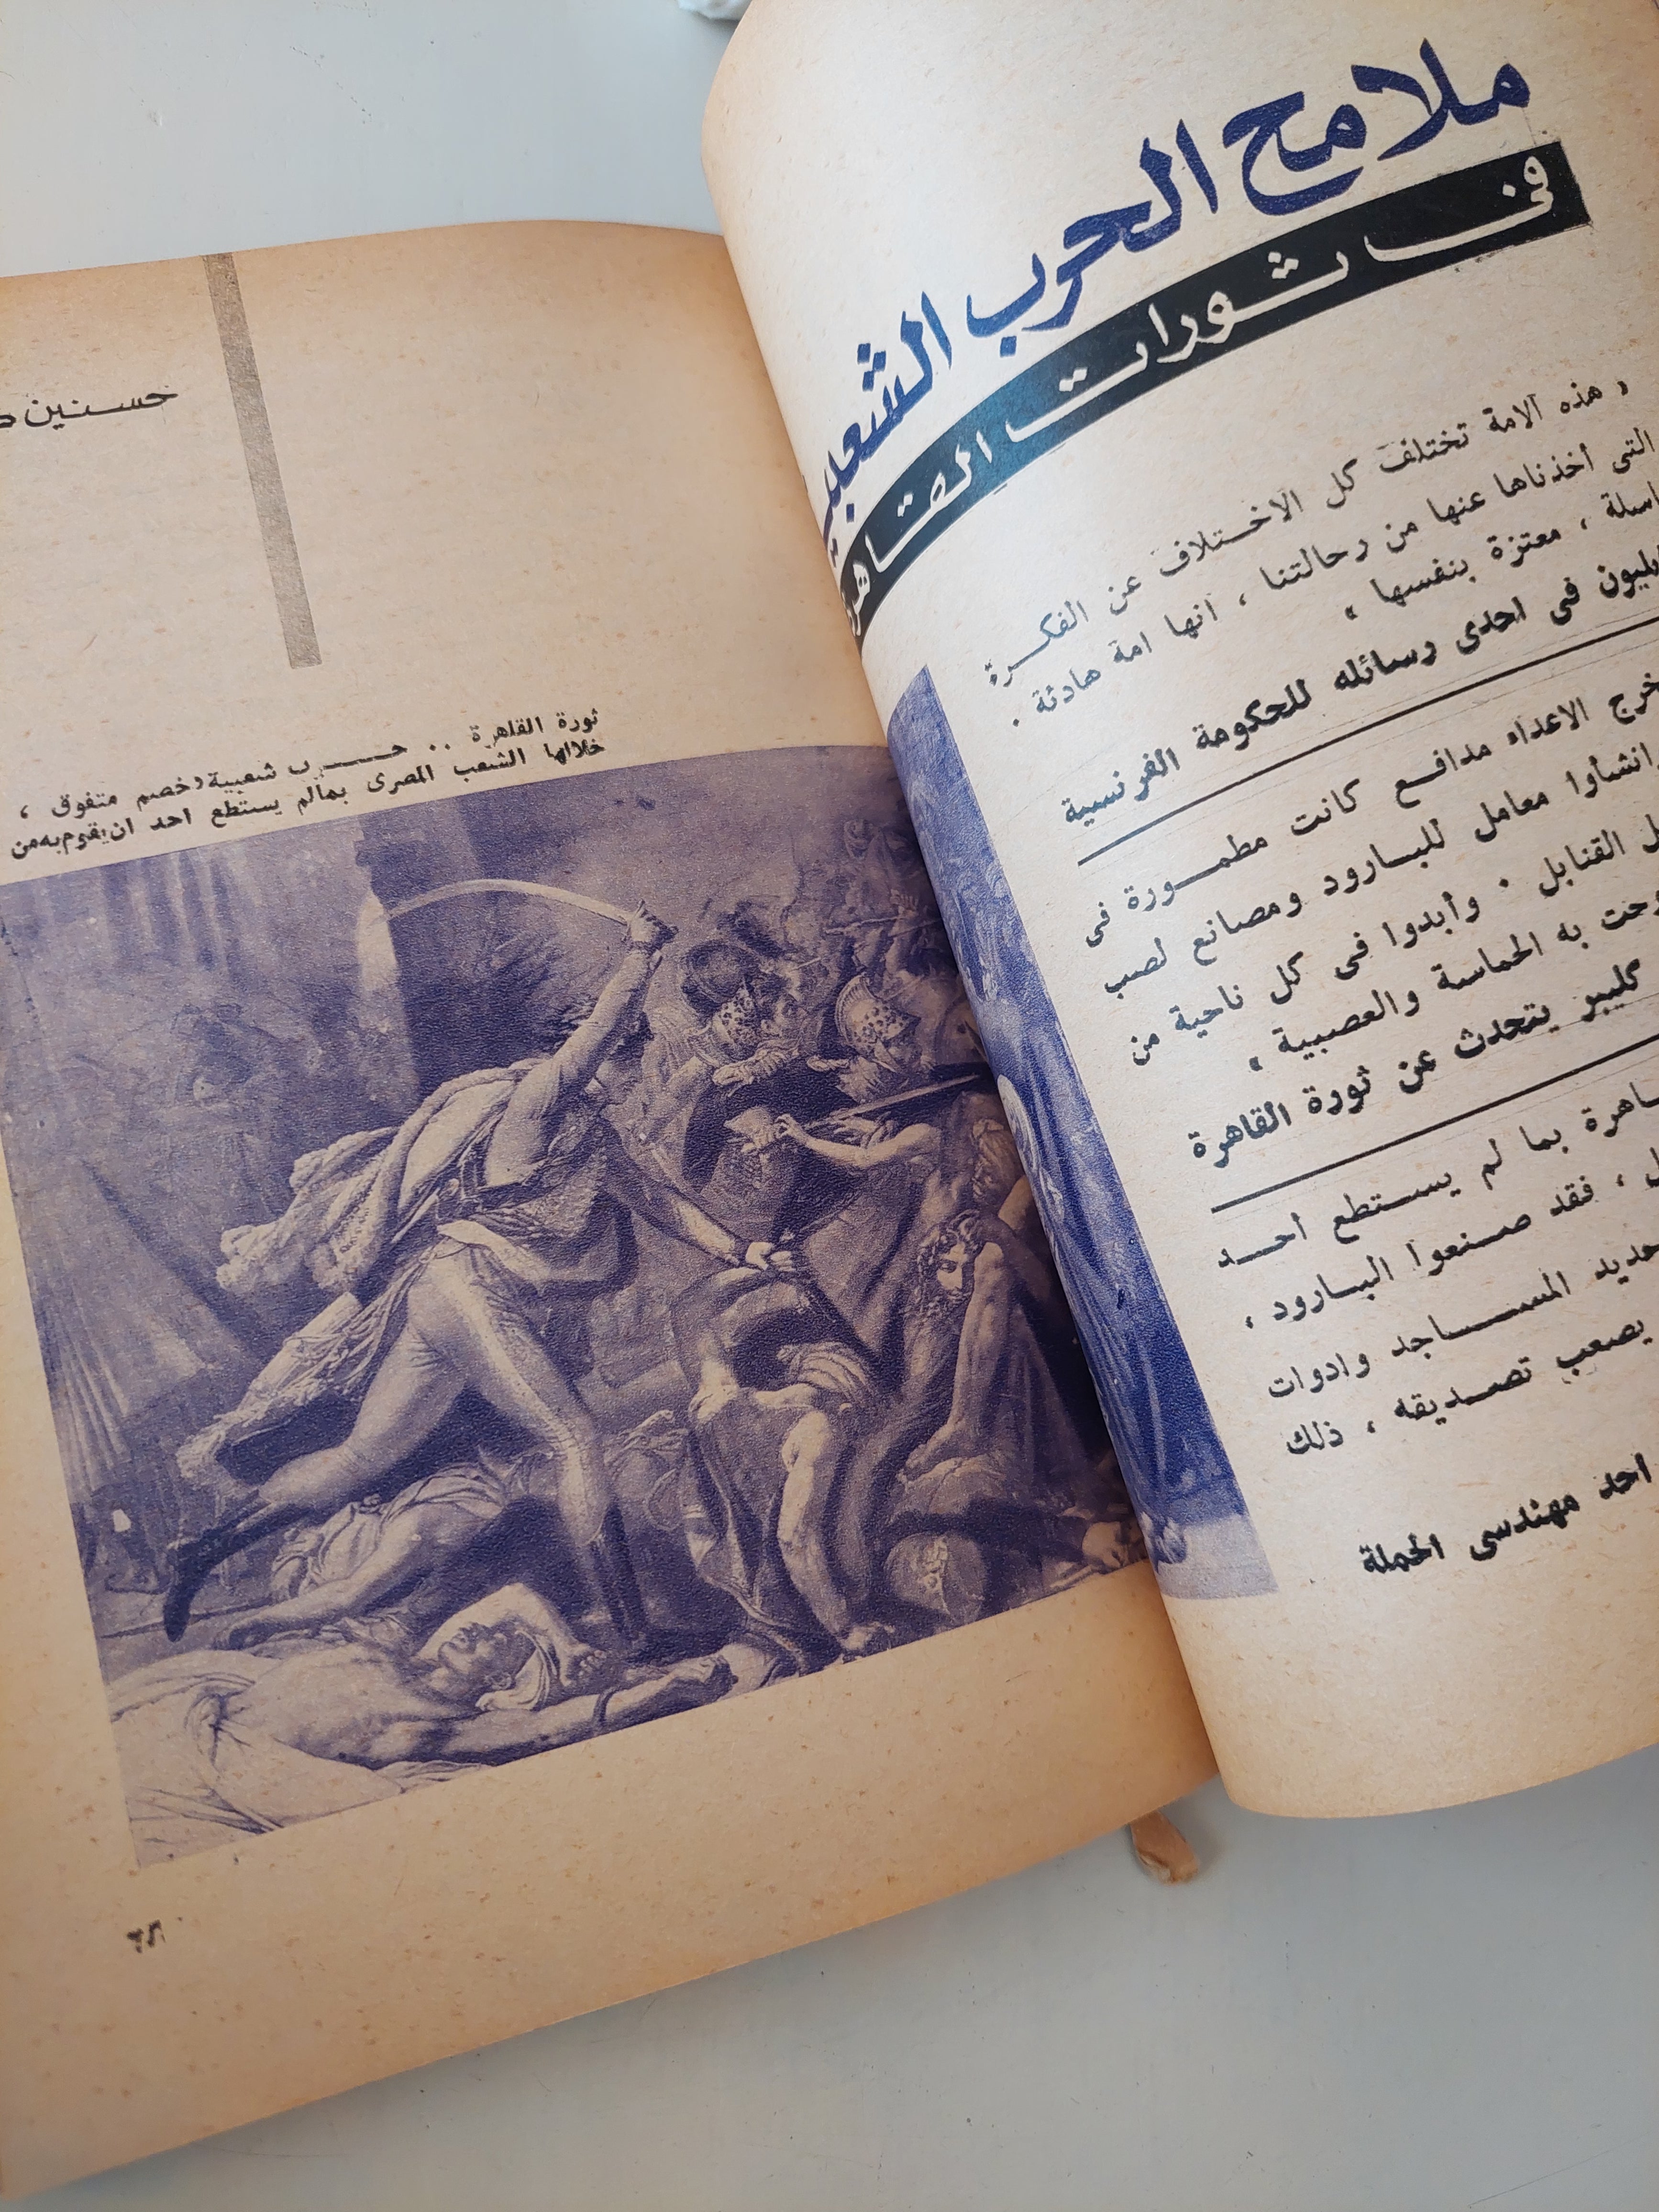 ملامح الحرب الشعبية
فى ثورات القاهرة
« هذه الامة تختلف كل الاختلاف عن الفكرة
التى أخذناها عنها من رحالتنا ، انها امة هادئة .
باسلة ، معتزة بنفسها »
فى احدى رسائله للحكومة الفرنسية
الاعداء مدافع كانت مطمورة فى
وانشأوا معامل للبارود ومصانع لصب
القنابل . وأبدوا فى كل ناحية من
به الحماسة والعصبية »
كليبر يتحدث عن ثورة القاهرة
بما لم يستطع أحد
، فقد صنعوا البارود ،
حديد المساجد وادوات
يصعب تصديقه ، ذلك
احد مهندسى الحملة
حسنين
ثورة القاهرة .. حرب شعبية وخصم متفوق ،
خلالها الشعب المصرى بمالم يستطع احد ان يقوم به من